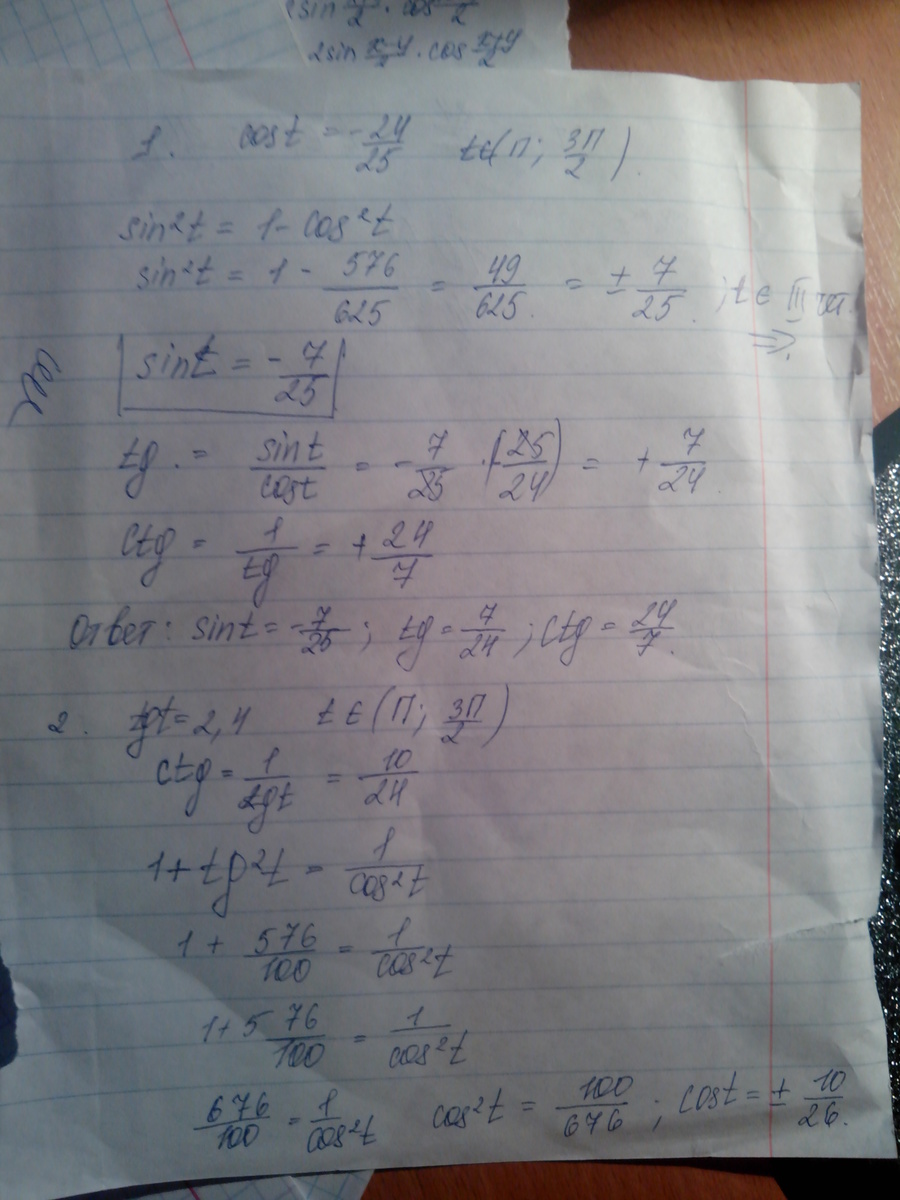 2sin x-y/2 · cos x+y/2
1. cost = -24/25 t∈(П; 3П/2).
sin²t = 1 - cos²t
sin²t = 1 - 576/625 = 49/625 = ± 7/25; t ∈ III чт. ⇒
sint = -7/25
tg. = sint/cost = -7/25 · (-25/24) = +7/24
Ctg = 1/tg = +24/7
Ответ: sint = -7/25; tg = 7/24; Ctg = 24/7.
2. tgt = 2,4 t ∈ (П; 3П/2)
ctg = 1/tgt = 10/24
1 + tg²t = 1/cos²t
1 + 576/100 = 1/cos²t
1 + 5 76/100 = 1/cos²t
676/100 = 1/cos²t cos²t = 100/676; cost = ± 10/26.